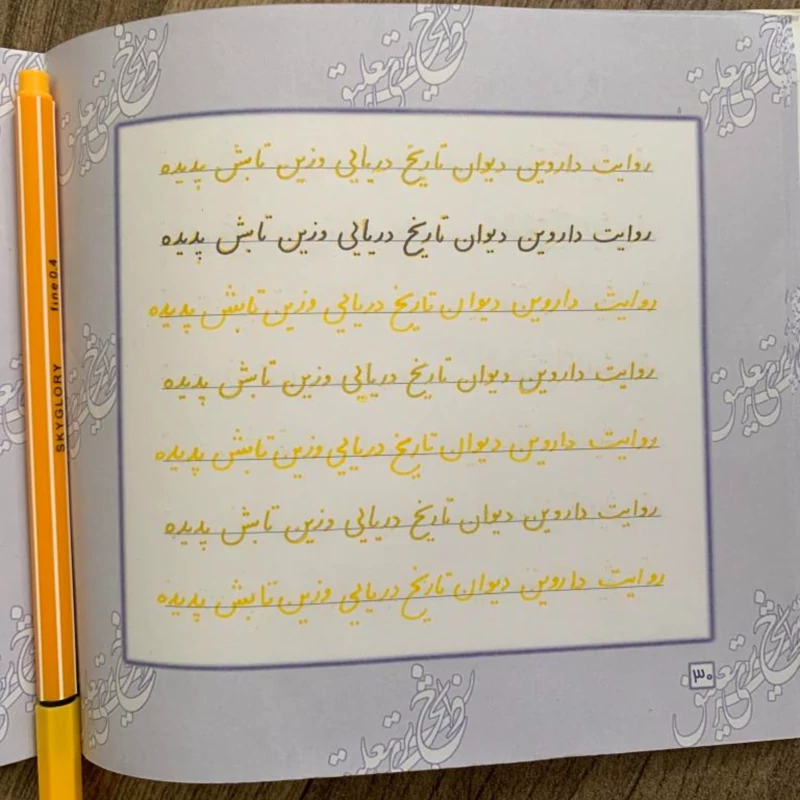 روایت داروین دیوان تاریخ دریایی وزین تابش پدیده
روایت داروین دیوان تاریخ دریایی وزین تابش پدیده
روایت داروین دیوان تاریخ دریایی وزین تابش پدیده
روایت داروین دیوان تاریخ دریایی وزین تابش پدیده
روایت داروین دیوان تاریخ دریایی وزین تابش پدیده
روایت داروین دیوان تاریخ دریایی وزین تابش پدیده
روایت داروین دیوان تاریخ دریایی وزین تابش پدیده
۳۰
SKYGLORY fine 0.4